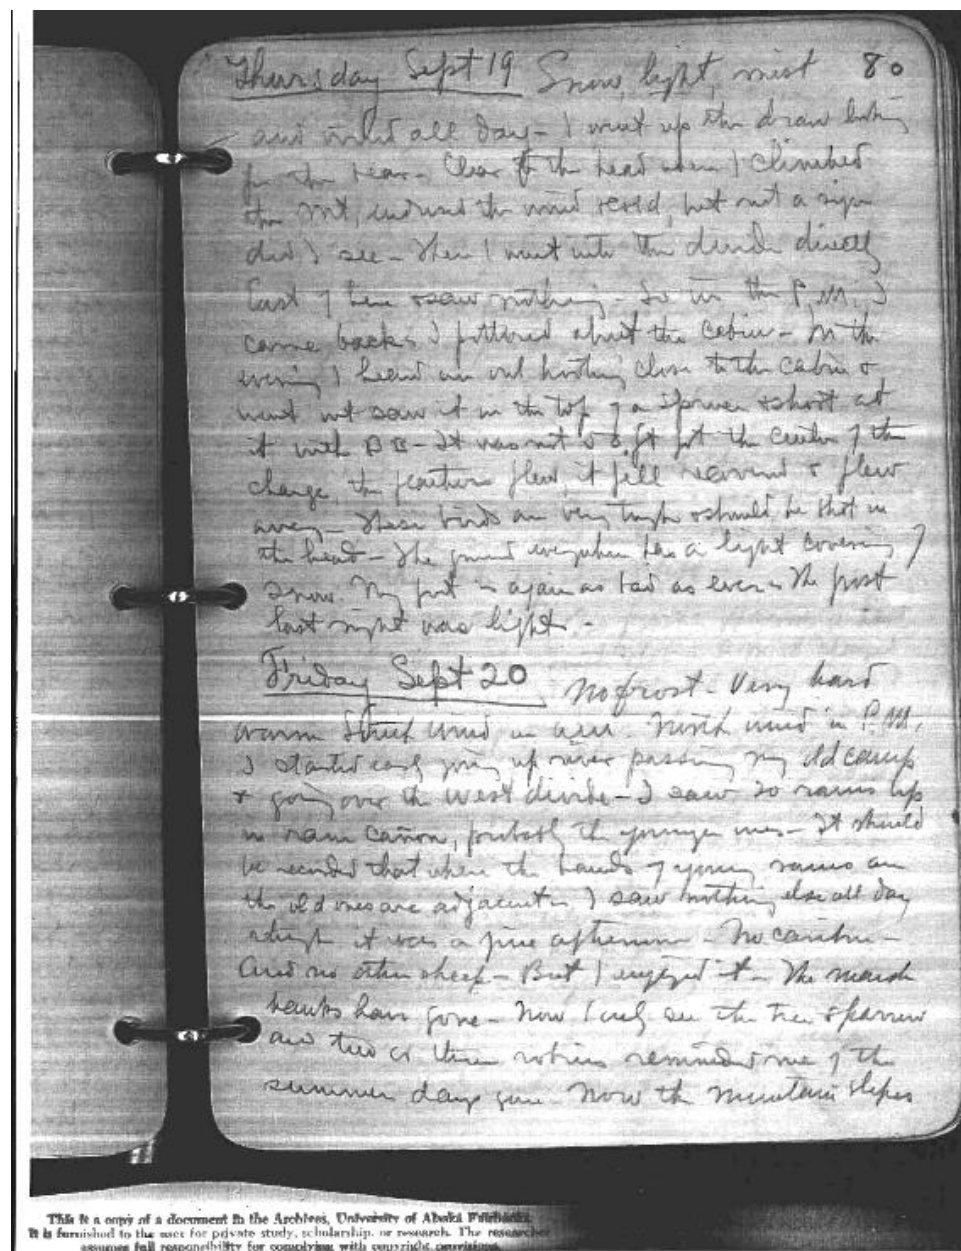 Thursday Sept 19 Snow, light, mist 80
and wind all day – I went up the draw looking
for the bear – Clear to the head when I climbed
the Mt, endured the wind & cold, but not a sign
did I see – Then I went into the divide directly
East of here & saw nothing – So in the P.M. I
came back & I puttered about the cabin – In the
evening I heard an owl hooting close to the cabin &
went out saw it in the top of a spruce & shot at
it with BB – It was not 50 ft got the center of the
charge, the feathers flew, it fell & flew
away – These birds are very tough & should be shot in
the head – The ground everywhere has a light covering of
snow. My foot is again as bad as ever – The frost
last night was light –
Friday Sept 20 No frost – Very hard
warm South wind in a.m. North wind in P.M.
I started early going up river passing my old camp
& going over the west divide – I saw 20 rams up
in ram cañon, probably the younger ones – It should
be recorded that where the bands of young rams are
the old ones are adjacent – I saw nothing else all day
although it was a fine afternoon – No caribou –
And no other sheep – But I enjoyed it – The marsh
hawks have gone – Now I only see the tree sparrow
and two or three robins reminded me of the
summer days gone – Now the mountain slopes
This is a copy of a document in the Archives, University of Alaska Fairbanks.
It is furnished to the user for private study, scholarship, or research. The researcher
assumes full responsibility for complying with copyright provisions.